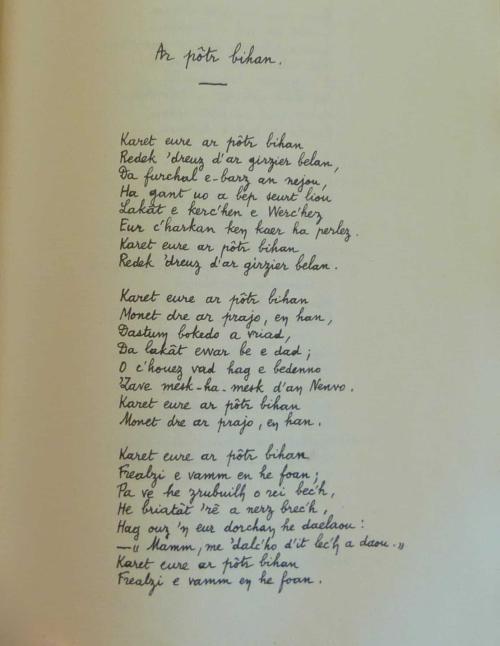 Ar pôtr bihan.
Karet eure ar pôtr bihan
Redek 'dreuz d'ar girzier belan,
Da furchal e-barz an nejou,
Ha gant uo a bep seurt liou
Lakât e kerc'hen e Werc'hez
Eur c'harkan ken kaer ha perlez.
Karet eure ar pôtr bihan
Redek 'dreuz d'ar girzier belan.
Karet eure ar pôtr bihan
Monet dre ar prajo, en han,
Dastum bokedo a vriad,
Da lakât ewar be e dad;
O c'houez vad hag e bedenno
'Zave mesk-ha-mesk d'an Nenvo.
Karet eure ar pôtr bihan
Monet dre ar prajo, en han.
Karet eure 'ar pôtr bihan
Frealzi e vamm en he foan;
Pa vê he zrubuilh o rei bec'h,
He briatât 'rê a nerz brec'h,
Hag ouz 'n eur dorchan he daelaou:
—" Mamm, me 'dalc'ho d'it lec'h a daou."
Karet eure ar pôtr bihan
Frealzi e vamm en he foan.